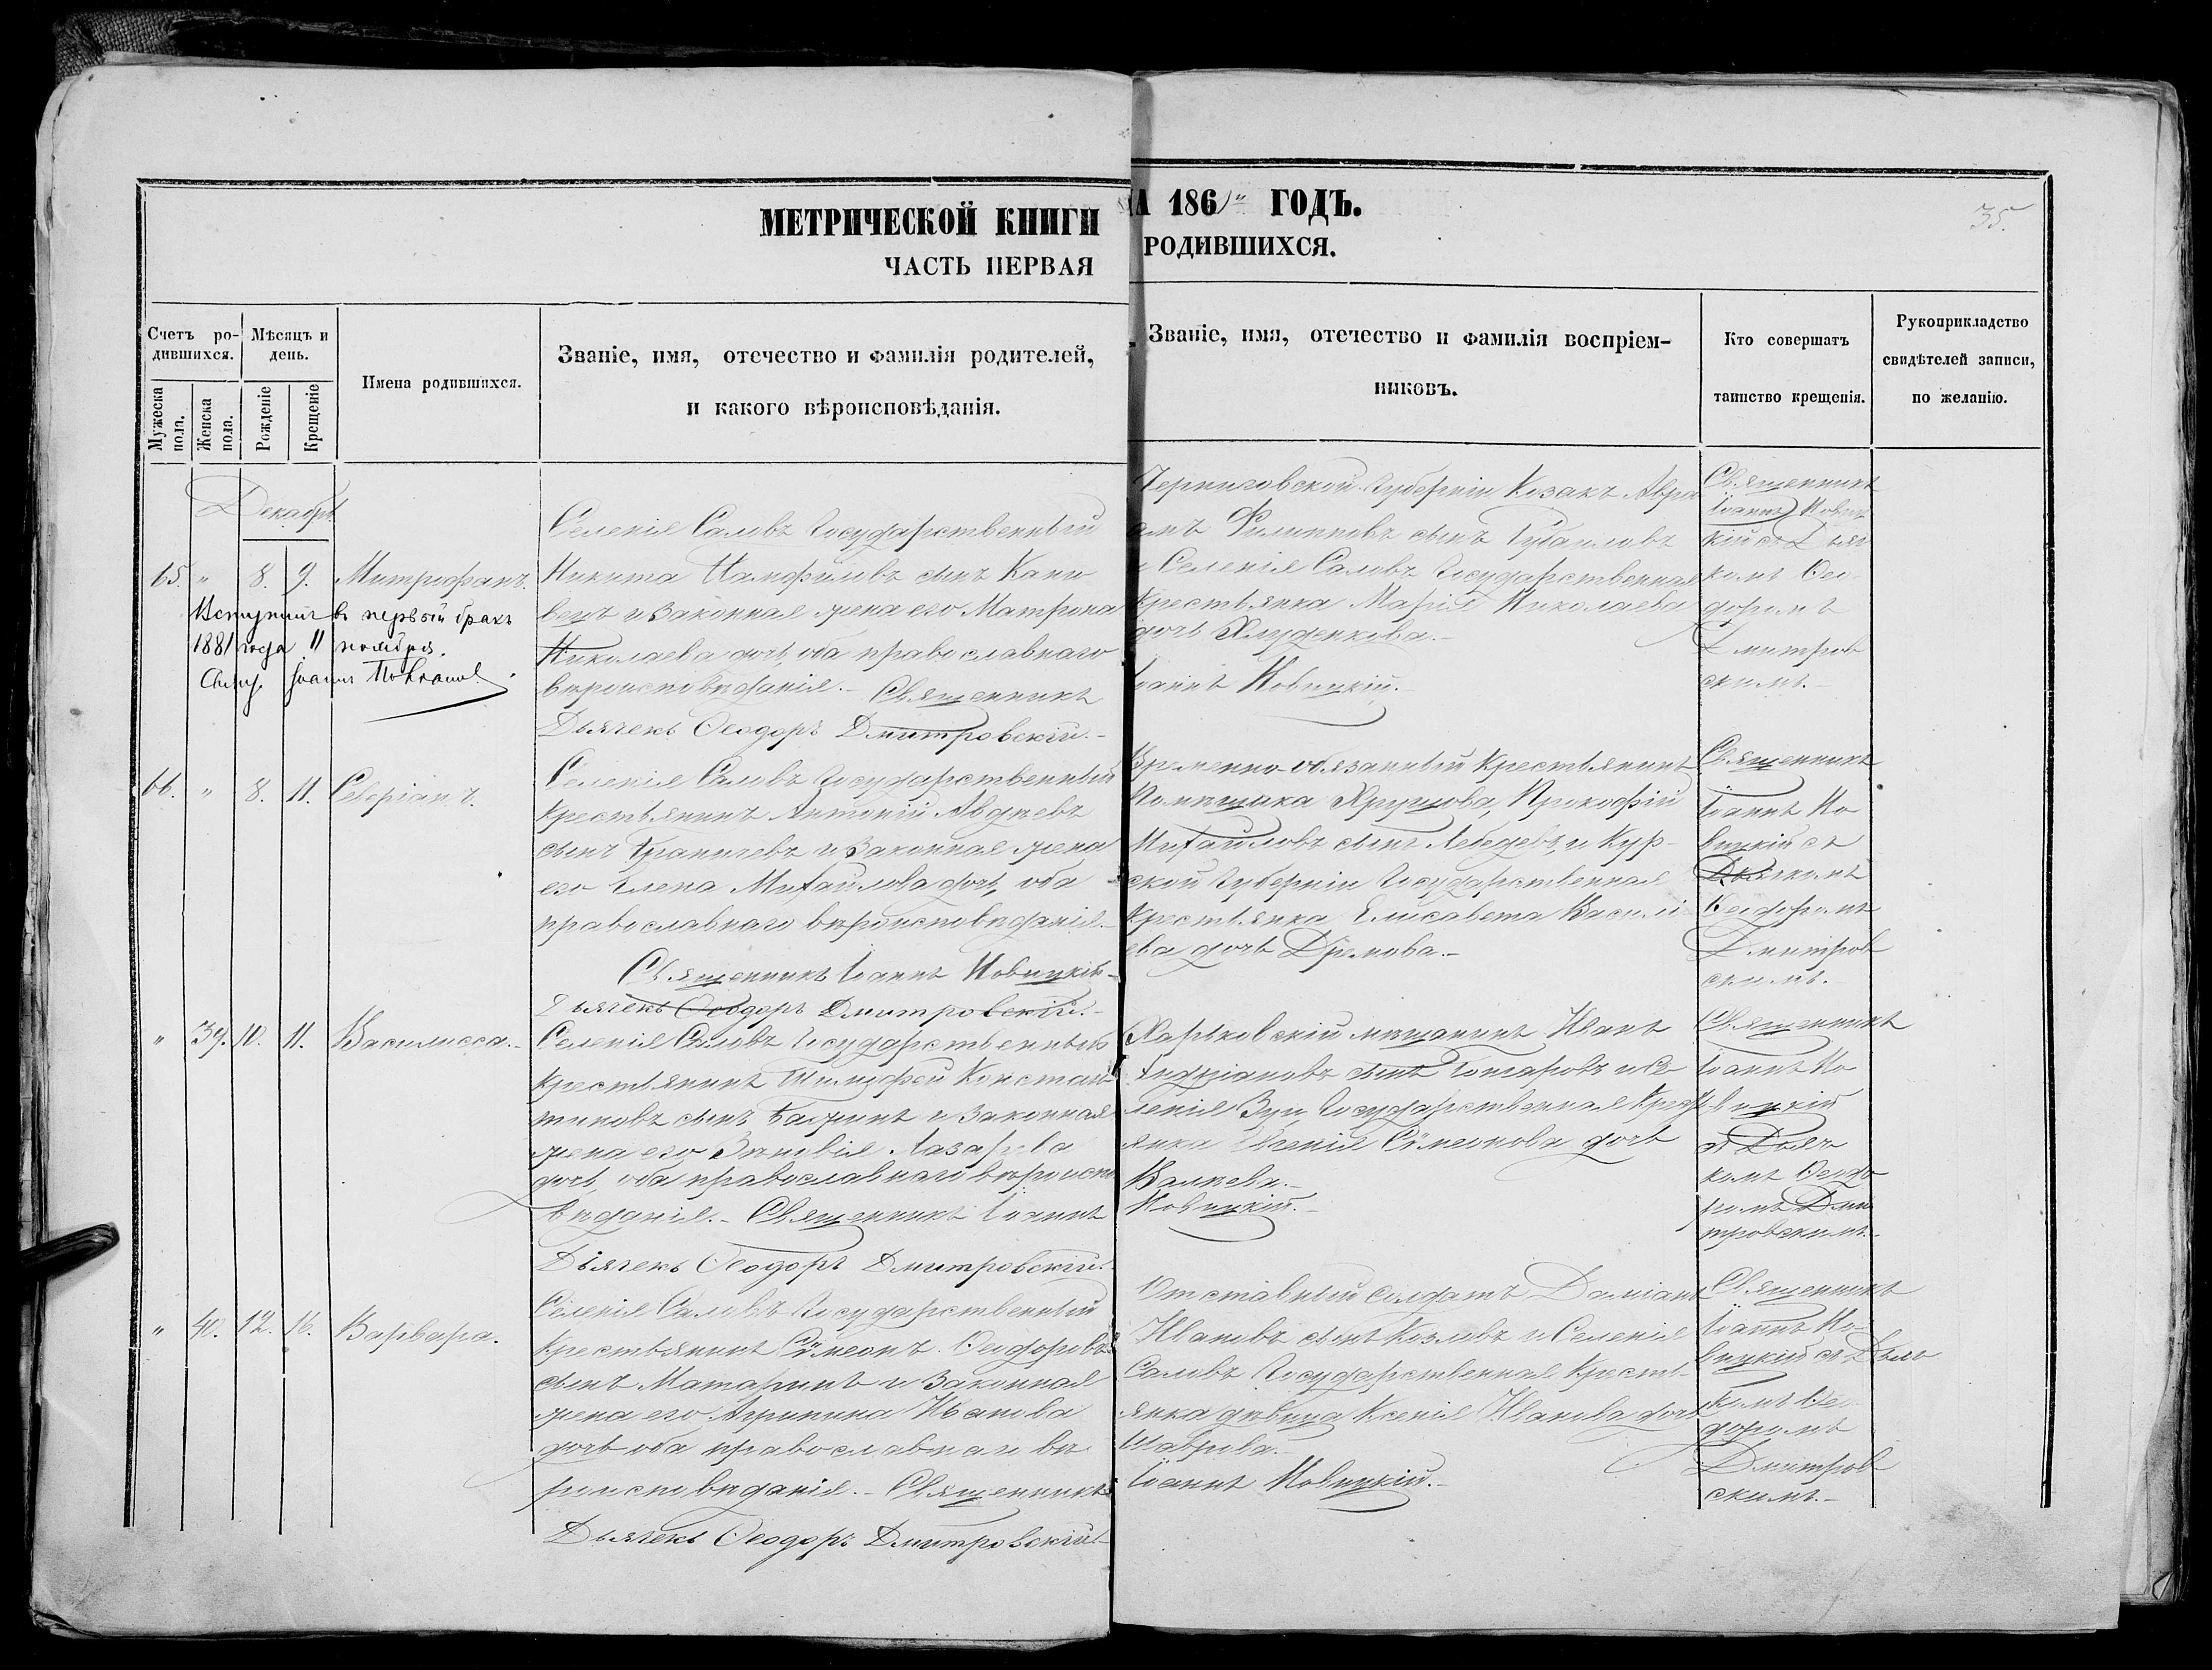 МЕТРИЧЕСКОЙ КНИГИ
ЧАСТЬ ПЕРВАЯ
186 ГОДЪ.
РОДИВШИХСЯ.
35.
Счетъ ро-
дившихся.
Мѣсяцъ и
день.
Мужеска
пола.
Женска
пола.
Рожденіе
Крещеніе
Имена родившихся.
Званіе, имя, отечество и фамилія родителей,
и какого вѣроисповѣданія.
Званіе, имя, отечество и фамилія воспріем-
никовъ.
Кто совершатъ
таинство крещенія.
Рукоприкладство
свидѣтелей записи,
по желанію.
Декабрь
65. " 8. 9. Митрофанъ.
Вступилъ въ первый бракъ
1881 года 11 ноября.
Іоаннъ
Селенія Саловъ Государственный
Никита Памфиловъ сынъ
и законная жена его Матрона
Николаева дочь, оба православнаго
вѣроисповѣданія.- Священникъ
Дьячекъ Ѳеодоръ Дмитровскій.-
Черниговской Губерніи Козакъ Авра
амъ Филипповъ сынъ
и Селенія Саловъ Государственная
Крестьянка Марія Николаева
дочь
Іоаннъ Новицкій.-
Священникъ
Іоаннъ Новиц
кій съ Дьяч
комъ Ѳео
доромъ
Дмитров
скимъ.-
66. " 8. 11. Северіанъ.
Селенія Саловъ Государственный
Крестьянинъ Антоній Авдѣевъ
сынъ и законная жена
его Елена Михайлова дочь, оба
православнаго вѣроисповѣданія.-
Священникъ Іоаннъ Новицкій.-
Дьячекъ Ѳеодоръ Дмитровскій.-
Временно-обязанный Крестьянинъ
Помѣщика Хрущова, Прокофій
Михайловъ сынъ Лебедевъ, и Кур-
ской Губерніи Государственная
Крестьянка Елисавета Василі
ева дочь Дремова.-
Священникъ
Іоаннъ Но
вицкій съ
Дьячкомъ
Ѳеодоромъ
Дмитров
скимъ.
" 39. 10. 11. Василисса.-
Селенія Саловъ Государственный
Крестьянинъ Тимофей Констан
тиновъ сынъ и законная
жена его Зиновія Лазарева
дочь, оба православнаго вѣроиспо
вѣданія.- Священникъ Іоаннъ
Дьячекъ Ѳеодоръ Дмитровскій.
Харьковскій мѣщанинъ Иванъ
сынъ Гончаровъ и Се
ленія Государственная Крест
янка Евгенія Сѵмеонова дочь
Новицкій.-
Священникъ
Іоаннъ Но
вицкій
съ Дьяч
комъ Ѳеодо
ромъ Дми
тровскимъ.-
" 40. 12. 16. Варвара.
Селенія Саловъ Государственный
Крестьянинъ Сѵмеонъ Ѳеодоровъ
сынъ и законная
жена его Агрипина Иванова
дочь оба православнаго вѣ
роисповѣданія.- Священникъ
Дьячекъ Ѳеодоръ Дмитровскій.-
Отставный солдатъ Даміанъ
Ивановъ сынъ Козловъ и Селенія
Саловъ Государственная Кресть-
янка дѣвица Ксенія Иванова дочь
Іоаннъ Новицкій.-
Священникъ
Іоаннъ Но-
вицкій съ Дьяч
комъ Ѳео
доромъ
Дмитров
скимъ.-